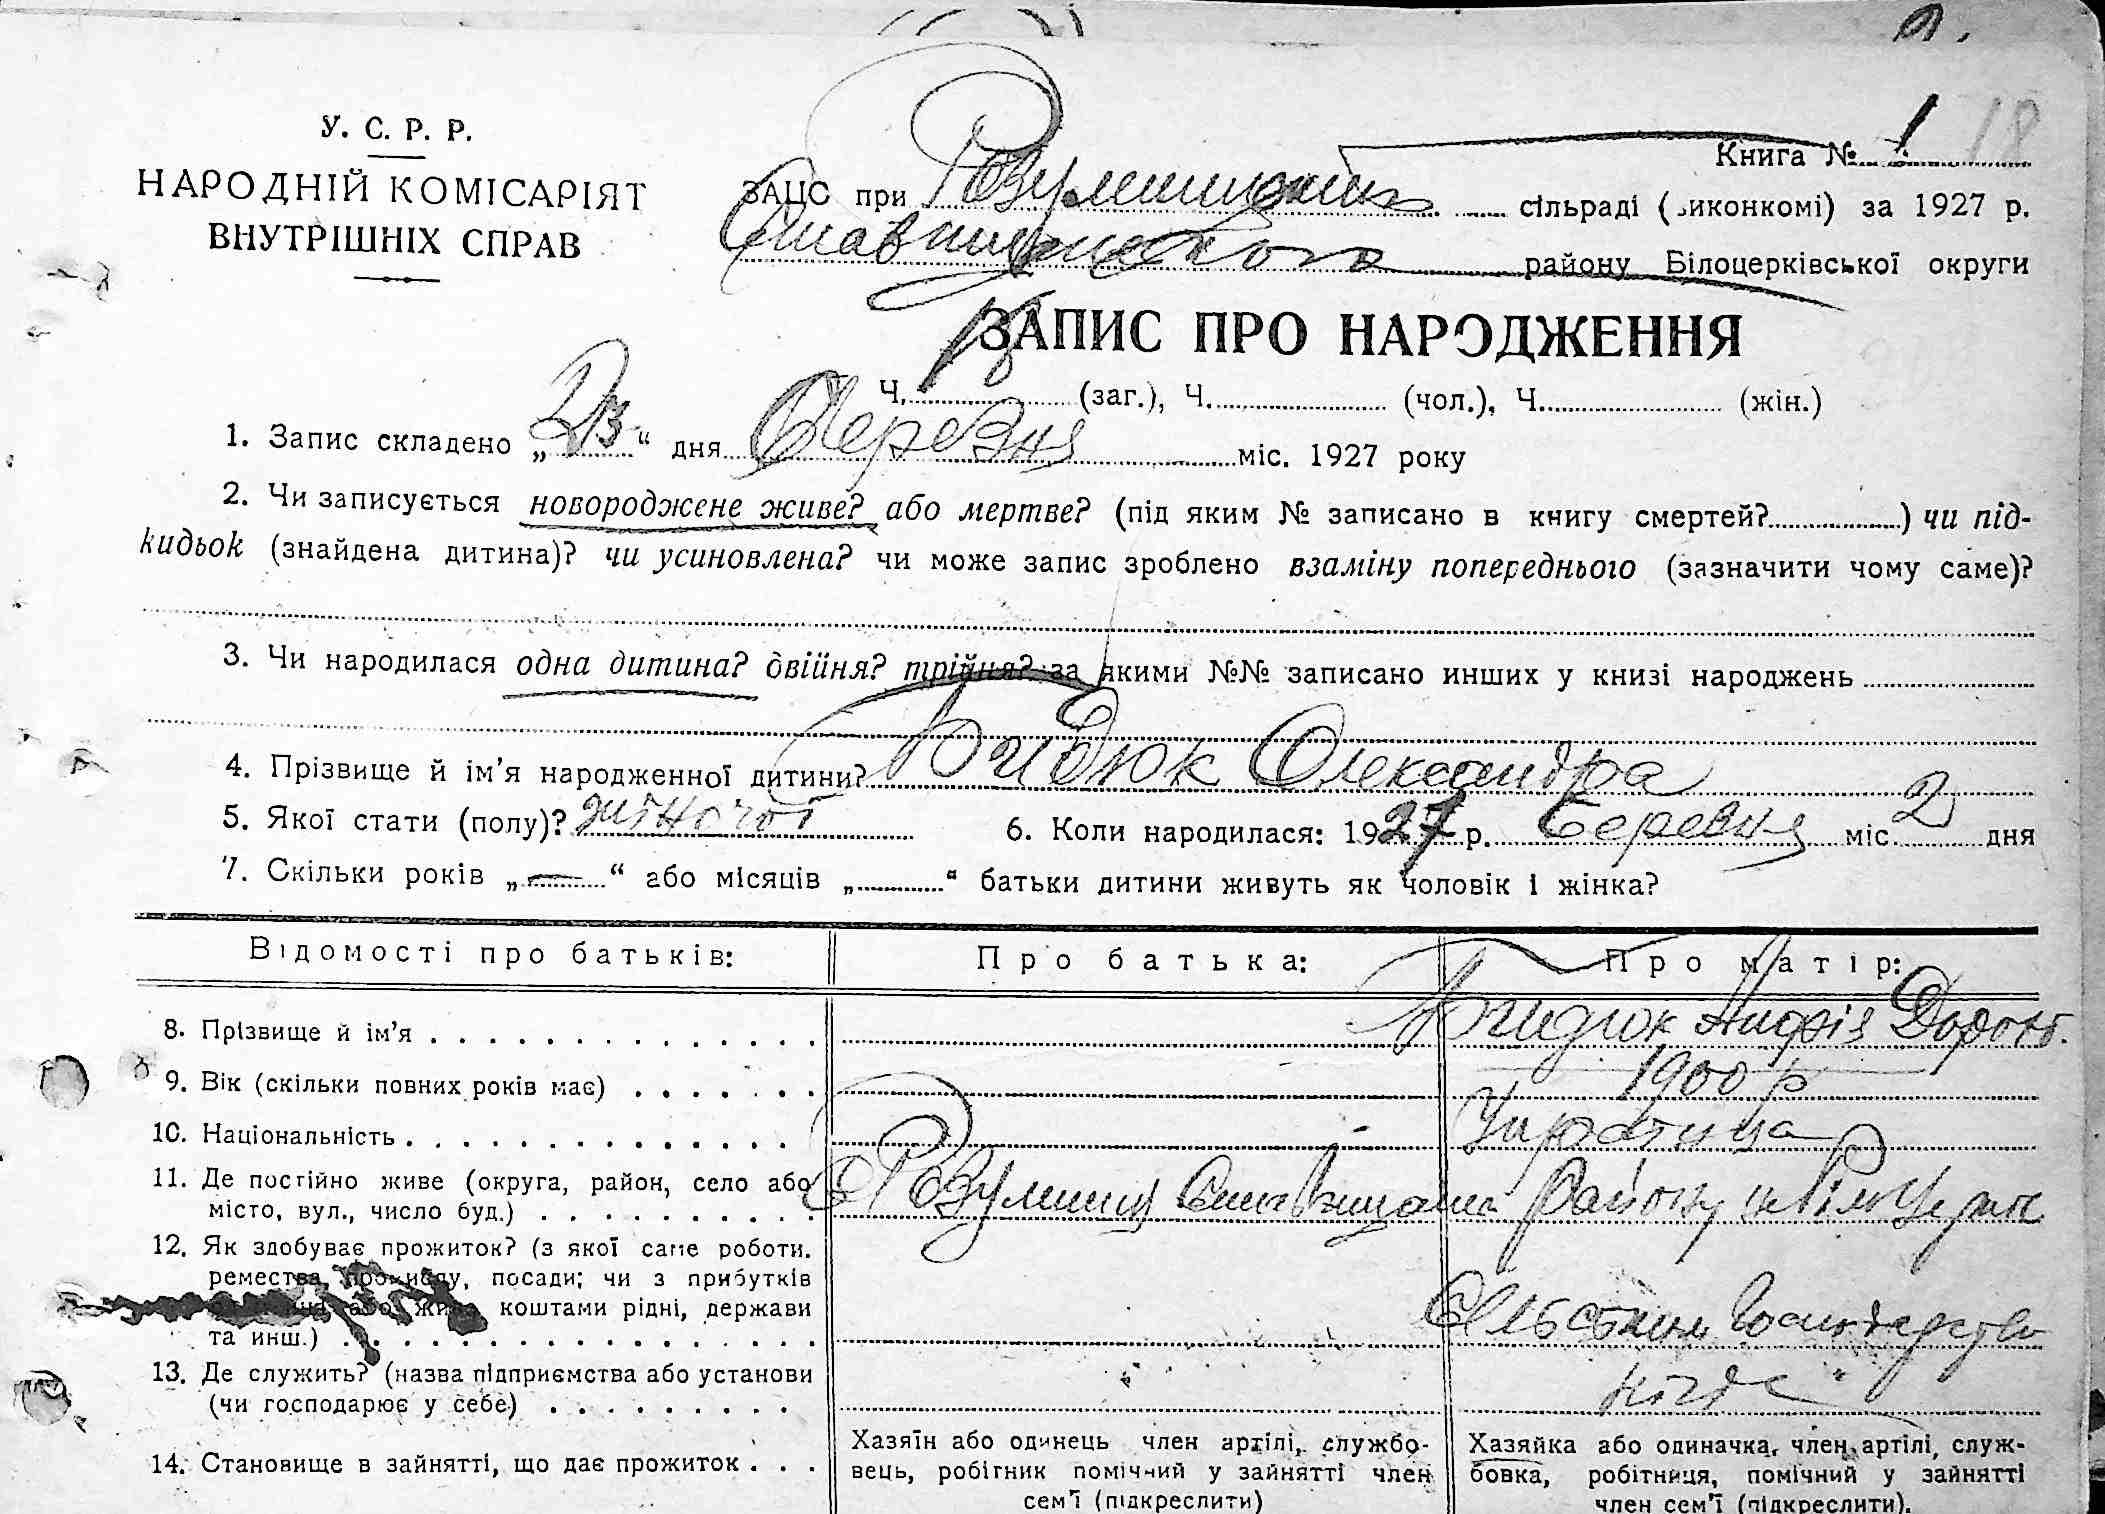 У. С. Р. Р.
НАРОДНІЙ КОМІСАРІЯТ
ВНУТРІШНІХ СПРАВ
Книга № 1 18
ЗАЦС при Розумницькій сільраді (виконкомі) за 1927 р.
Ставищенського району Білоцерківської округи
ЗАПИС ПРО НАРОДЖЕННЯ
Ч. 18 (заг.), Ч. (чол.), Ч. (жін.)
1. Запис складено „23“ дня Березня міс. 1927 року
2. Чи записується новороджене живе? або мертве? (під яким № записано в книгу смертей? ) чи під-
кидьок (знайдена дитина)? чи усиновлена? чи може запис зроблено взаміну попереднього (зазначити чому саме)?
3. Чи народилася одна дитина? двійня? трійня? за якими №№ записано инших у книзі народжень
4. Прізвище й ім'я народженної дитини? Бидюк Олександра
5. Якої стати (полу)? жіночої 6. Коли народилася: 1927 р. Березня міс 2 дня
7. Скільки років „—“ або місяців „ “ батьки дитини живуть як чоловік і жінка?
Відомості про батьків: Про батька: Про матір:
8. Прізвище й ім'я Бидюк
9. Вік (скільки повних років має) 1900 р
10. Національність
11. Де постійно живе (округа, район, село або
місто, вул., число буд.) с Розумниці Ставищан району
12. Як здобуває прожиток? (з якої саме роботи,
ремества, промислу, посади; чи з прибутків
або живе коштами рідні, держави
та инш.) Сільским Господарство
13. Де служить? (назва підприємства або установи
(чи господарює у себе) нігде
14. Становище в зайнятті, що дає прожиток
Хазяїн або одинець член артілі, службо-
вець, робітник помічний у зайнятті член
сем'ї (підкреслити)
Хазяйка або одиначка, член артілі, служ-
бовка, робітниця, помічний у зайнятті
член сем'ї (підкреслити).